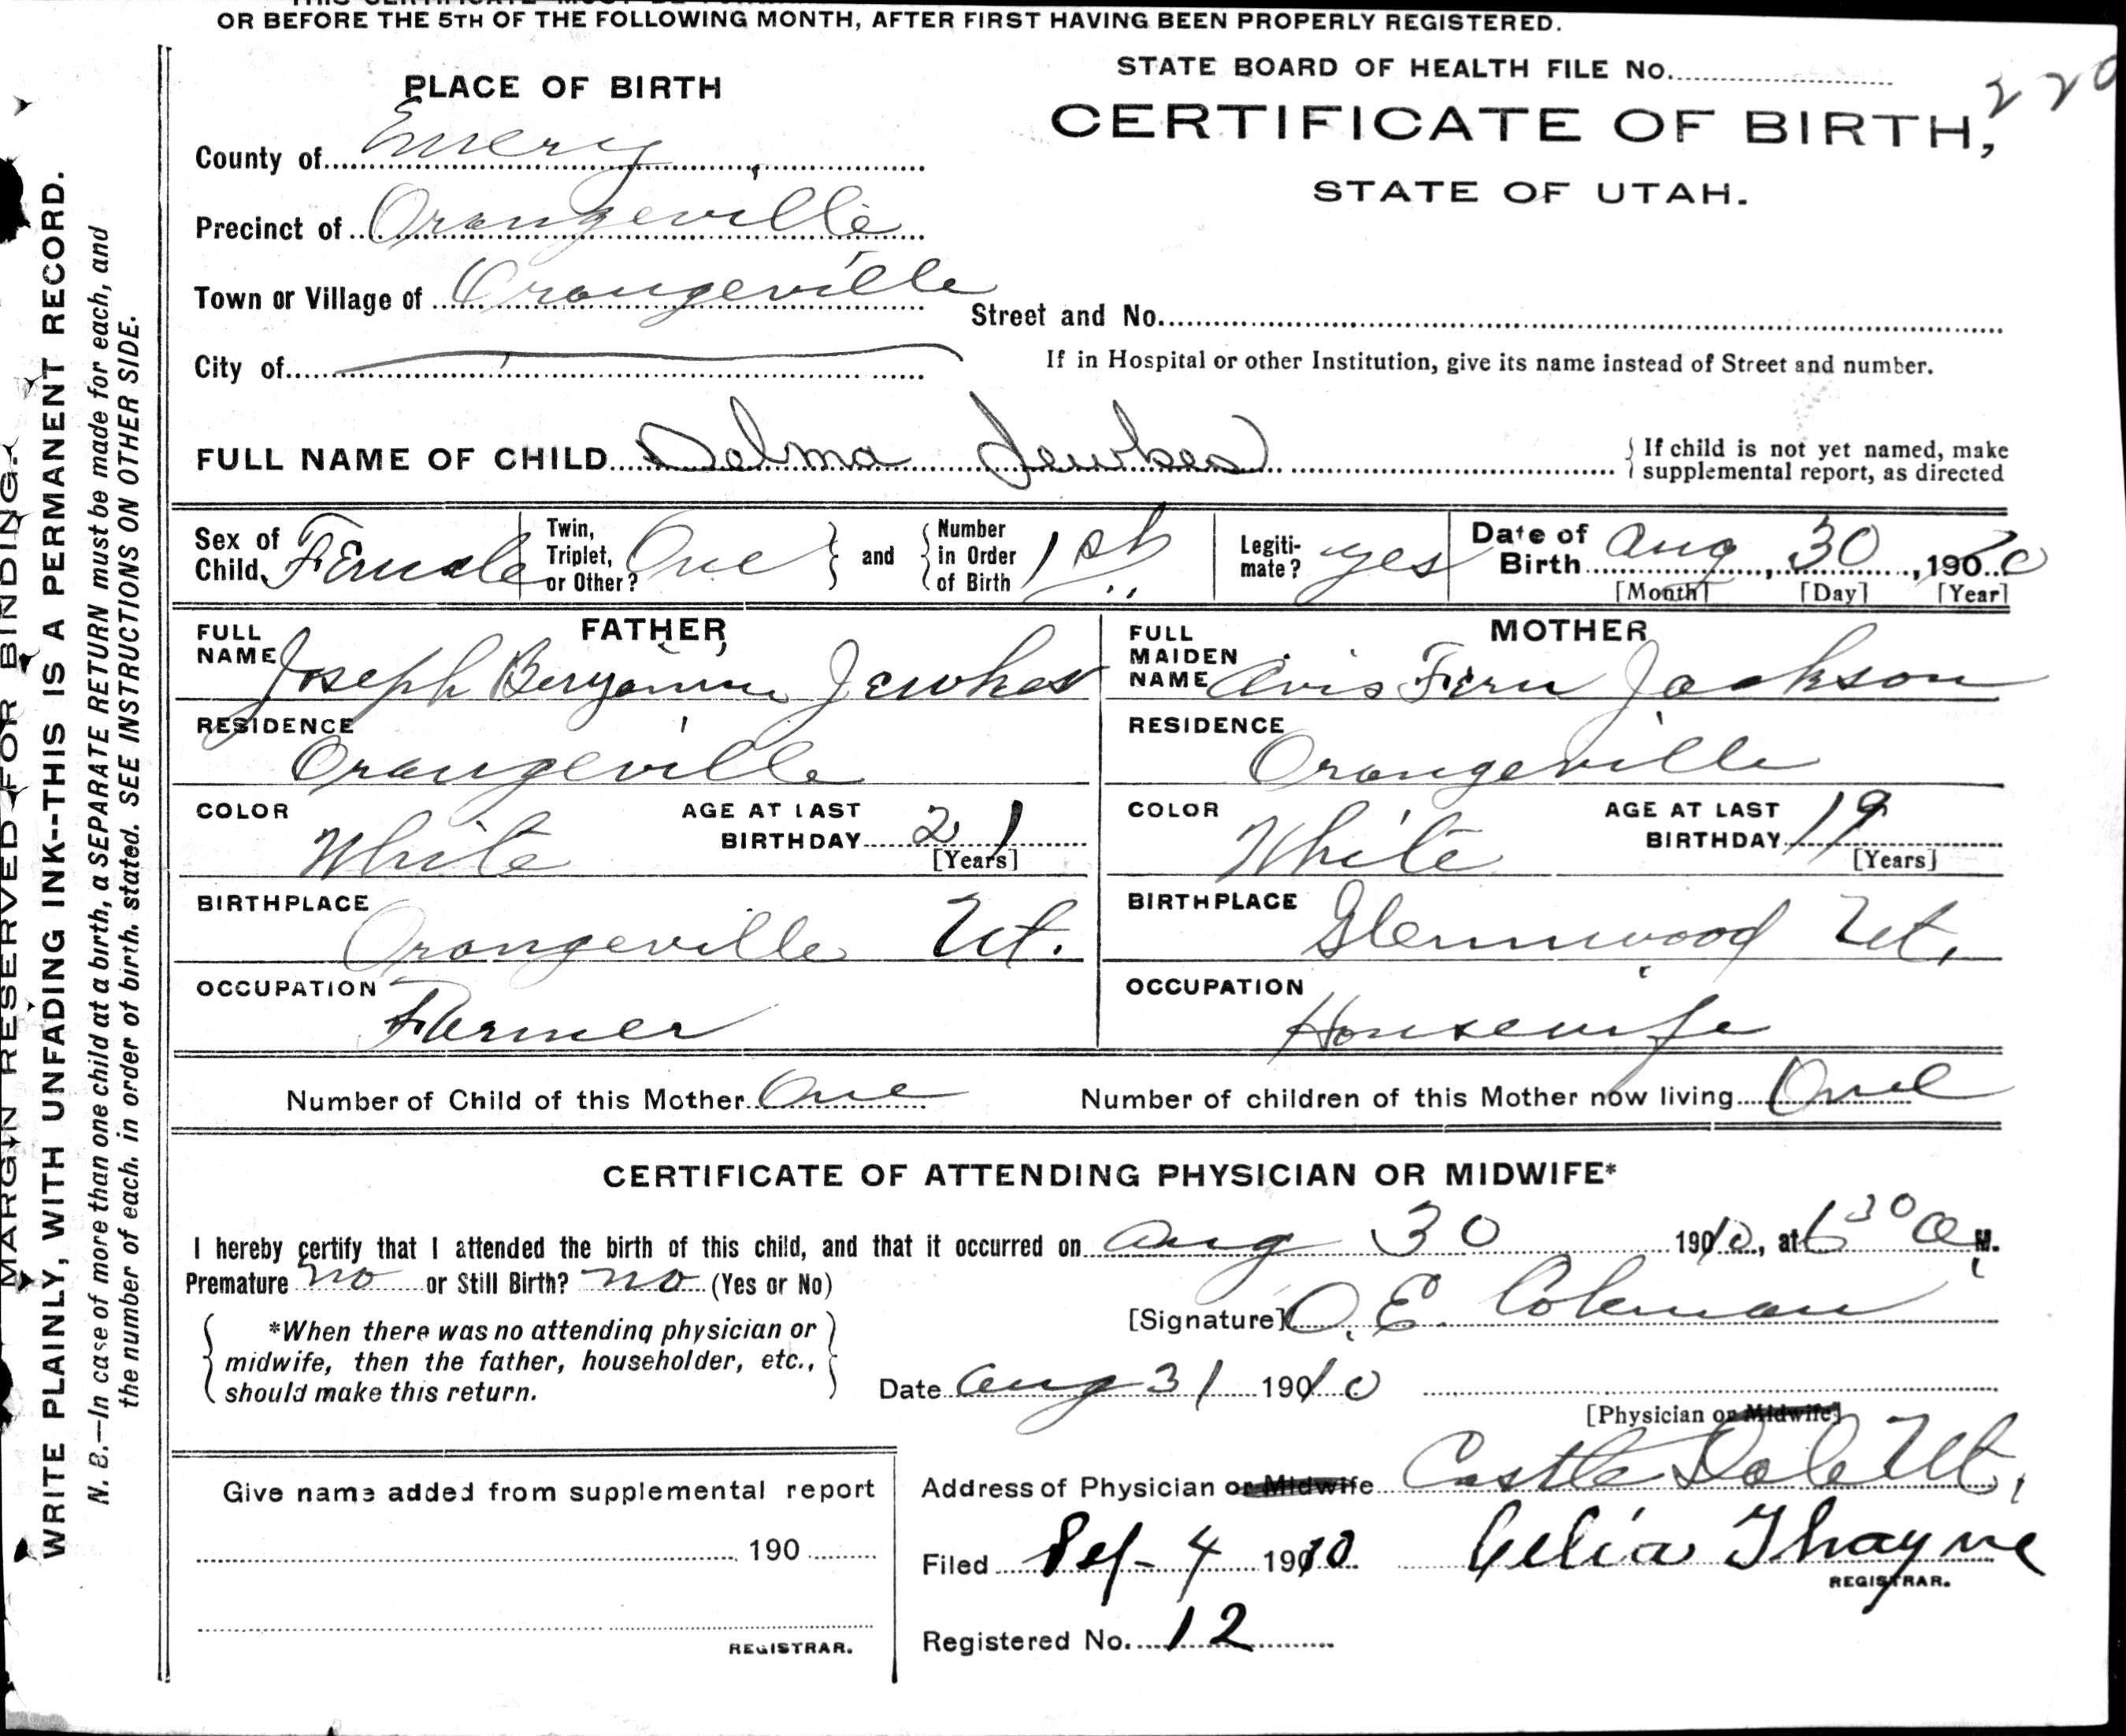 OR BEFORE THE 5TH OF THE FOLLOWING MONTH, AFTER FIRST HAVING BEEN PROPERLY REGISTERED.
STATE BOARD OF HEALTH FILE No. 220
PLACE OF BIRTH
CERTIFICATE OF BIRTH,
STATE OF UTAH.
County of Emery
Precinct of Orangeville
Town or Village of Orangeville
Street and No.
City of
If in Hospital or other Institution, give its name instead of Street and number.
FULL NAME OF CHILD Delma Jewkes
If child is not yet named, make
supplemental report, as directed
Sex of Child Female Twin, Triplet, or Other? One and Number in Order of Birth 1st Legiti- mate? yes Date of Birth Aug 30, 1910
[Month] [Day] [Year]
FATHER MOTHER
FULL NAME Joseph Benjamin Jewkes FULL MAIDEN NAME Avis Fern Jackson
RESIDENCE Orangeville RESIDENCE Orangeville
COLOR White AGE AT LAST BIRTHDAY 21 [Years] COLOR White AGE AT LAST BIRTHDAY 19 [Years]
BIRTHPLACE Orangeville Ut. BIRTHPLACE Glennwood Ut.
OCCUPATION Farmer OCCUPATION Housewife
Number of Child of this Mother One Number of children of this Mother now living One
CERTIFICATE OF ATTENDING PHYSICIAN OR MIDWIFE*
I hereby certify that I attended the birth of this child, and that it occurred on Aug 30 1910, at 6 30 a M.
Premature no or Still Birth? no (Yes or No)
[Signature] O. E. Coleman
*When there was no attending physician or
midwife, then the father, householder, etc.,
should make this return.
Date Aug 31 1910
[Physician or Midwife]
Address of Physician or Midwife Castle Dale Ut.
Give name added from supplemental report
190
REGISTRAR.
Filed Sep - 4 1910 Celia Thayne
REGISTRAR.
Registered No. 12
MARGIN RESERVED FOR BINDING.
WRITE PLAINLY, WITH UNFADING INK--THIS IS A PERMANENT RECORD.
N. B.—In case of more than one child at a birth, a SEPARATE RETURN must be made for each, and
the number of each, in order of birth, stated. SEE INSTRUCTIONS ON OTHER SIDE.